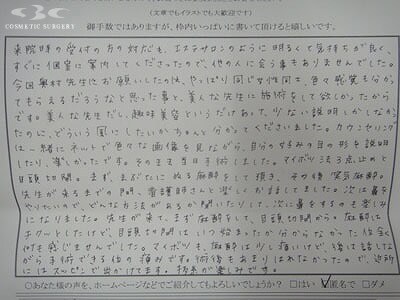 SBC
COSMETIC SURGERY
(文章でもイラストでも大歓迎です)
御手数ではありますが、枠内いっぱいに書いて頂けると嬉しいです。
来院時の受付の方の対応も、エステサロンのように明るくて気持ちが良く、
すぐに個室に案内してくださったので、他の人に会う事もありませんでした。
今回奥村先生にお願いしたのは、やっぱり同じ女性同士、色々感覚も分かっ
てもらえるだろうなと思った事と、美人な先生に施術をして欲しかったから
です。美人な先生だし、趣味美容というだけあって、少ない説明しかしなかっ
たのに、どういう風にしたいかちゃんと分かってくださいました。カウンセリング
は一緒にネットで色々な画像を見ながら、自分の好みの目の形を説明
したり、楽しかったです。そのまま当日手術しました。マイボツ法3点止めと
目頭切開。まず、まぶたにぬる麻酔をして頂き、その後笑気麻酔。
先生が来るまでの間、看護師さんと楽しくお話してました。次は鼻を
やりたいので、どんな方法があるか聞いたりして、次に鼻をするのも楽しみ
になりました。先生が来て、まず麻酔をして、目頭切開から。麻酔は
チクーとしたけど、目頭切開はいつ始まったか分からなかった位全く
何も感じませんでした。マイボツも、麻酔は少し痛いけど、後は話しな
がら手術できる位の痛みです。術後もあまりはれなかったので、近所
にはスッピンで出かけてます。抜糸が楽しみです。
○あなた様の声を、ホームページなどでご紹介してもよろしいでしょうか? □はい ☑匿名で □ダメ